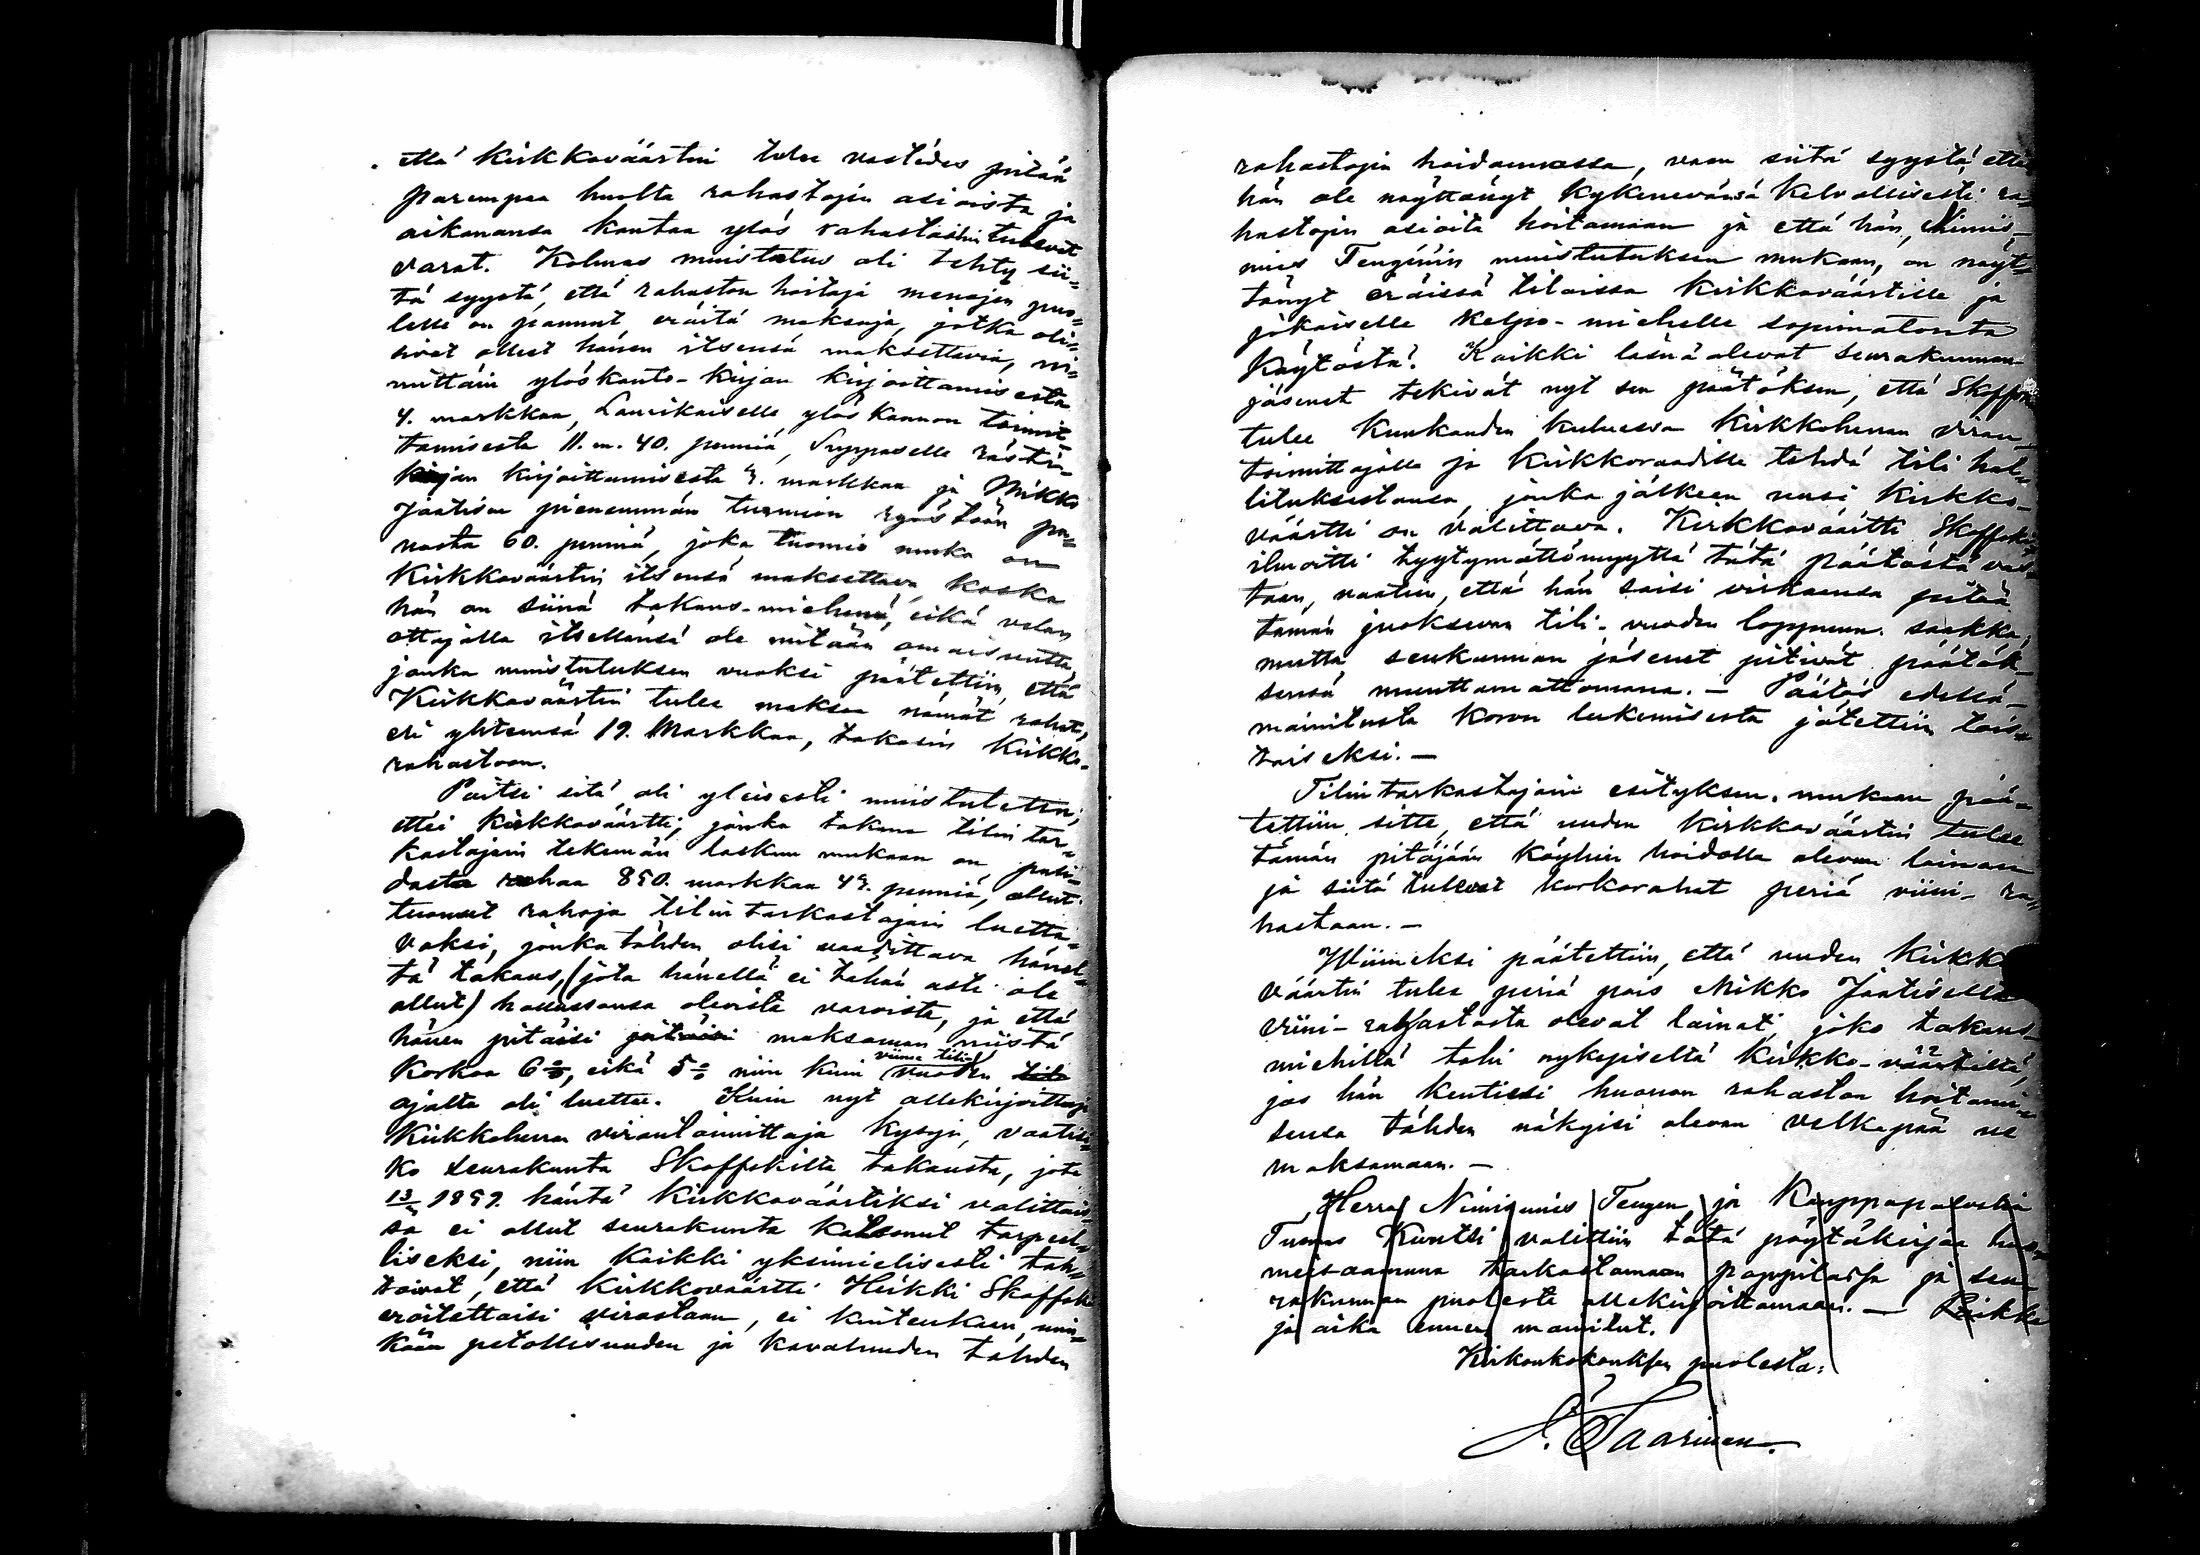 että Kirkkoväärtin tulee vastedes pitää
parempaa huolta rahastojen asioista ja
aikanansa kantaa ylös rahastoihin tulevat
varat. Kolmas muistutus oli tehty sii-
tä syystä, että rahaston hoitaja menojen puo-
lelle on pannut eräitä maksoja, jotka oli-
sivat olleet hänen itsensä maksettavia, ni-
mittäin ylöskanto-kirjan kirjoittamisesta
4. markkaa, Laurikaiselle ylöskannon toimit-
tamisesta 11. m. 40. penniä, Suppaselle rästi-
kirjan kirjoittamisesta 3. markkaa ja Mikko
Jaatisen pienemmän tuomion ryöstöön pa-
nosta 60. penniä, joka tuomio muka on
Kirkkoväärtin itsensä maksettava, koska
hän on siinä takaus-miehenä, eikä velan
ottajalla itsellänsä ole mitään omaisuutta
jonka muistutuksen vuoksi päätettiin, että
Kirkkoväärtin tulee maksaa nämät rahat,
eli yhteensä 19. Markkaa, takasin Kirkko-
rahastoon.
Paitsi sitä oli yleisesti muistutettu,
ettei Kirkkoväärtti, jonka takana tilin tar-
kastajain tekemän laskun mukaan on puh-
dasta rahaa 850. markkaa 49. penniä, ollut
tuonut rahoja tilin tarkastajain luetta-
vaksi, jonka tähden olisi vaadittava hänel-
tä takaus, (jota hänellä ei tähän asti ole
ollut) hallussansa olevista varoista, ja että
hänen pitäisi pitäisi maksaman niistä
Korkoa 6%, eikä 5% niin kuin viime tili
vuoden tili
ajalta oli luettu. Kuin nyt allekirjoittanut
Kirkkoherran virantoimittaja kysyi, vaatisi-
ko seurakunta Skaffskilta takausta, jota
1859. häntä Kirkkoväärtiksi valittais-
sa ei ollut seurakunta katsonut tarpeel-
liseksi, niin kaikki yksimielisesti tah-
toivat, että Kirkkoväärtti Heikki Skaffski
eroitettaisi virastaan, ei kuitenkaan min-
kään petollisuuden ja kavaluuden tähden
rahastojen hoidannossa, vaan siitä syystä, ettei
hän ole näyttänyt kykenevänsä kelvollisesti ra-
hastojen asioita hoitamaan ja että hän, Nimis-
mies Tengénin muistutuksen mukaan, on näyt-
tänyt eräissä tiloissa Kirkkoväärtille ja
jokaiselle kelpo-miehelle sopimatonta
käytöstä. Kaikki läsnä olevat seurakunnan
jäsenet tekivät nyt sen päätöksen, että Skaffskin
tulee kuukauden kuluessa Kirkkoherran viran
toimittajalle ja Kirkkoraadille tehdä tili hal-
lituksestansa, jonka jälkeen uusi Kirkko-
väärtti on valittava. Kirkkoväärtti Skaffski
ilmoitti tyytymättömyyttä tätä päätöstä vas-
taan, vaatien, että hän saisi virkaansa pitää
tämän juoksevan tili-vuoden loppuun saakka,
mutta seurakunnan jäsenet pitivät päätök-
sensä muuttamattomana. — Päätös edellä-
mainitusta koron lukemisesta jätettiin tois-
taiseksi. —
Tilintarkastajain esityksen mukaan pää-
tettiin sitte, että uuden Kirkkoväärtin tulee
tämän pitäjään köyhien hoidolla olevan lainan
ja siitä tulevat korkorahat periä viini-ra-
hastoon. —
Wiimeksi päätettiin, että uuden Kirkko
väärtin tulee periä pois Mikko Jaatisella
viini-rahastosta olevat lainat, joko takaus-
miehiltä tahi nykyiseltä Kirkko-väärtiltä,
jos hän kenties huonon rahaston hoitami-
sensa tähden näkyisi olevan velkapää ne
maksamaan. —
Herra Nimismies Tengén ja Kauppapalvelia
Tuomas Kuntsi valittiin tätä pöytäkirjaa huo-
meisaamuna tarkastamaan pappilassa ja seu-
rakunnan puolesta allekirjoittamaan. — Paikka
ja aika ennen mainitut.
Kirkonkokouksen puolesta:
J. Saarinen.